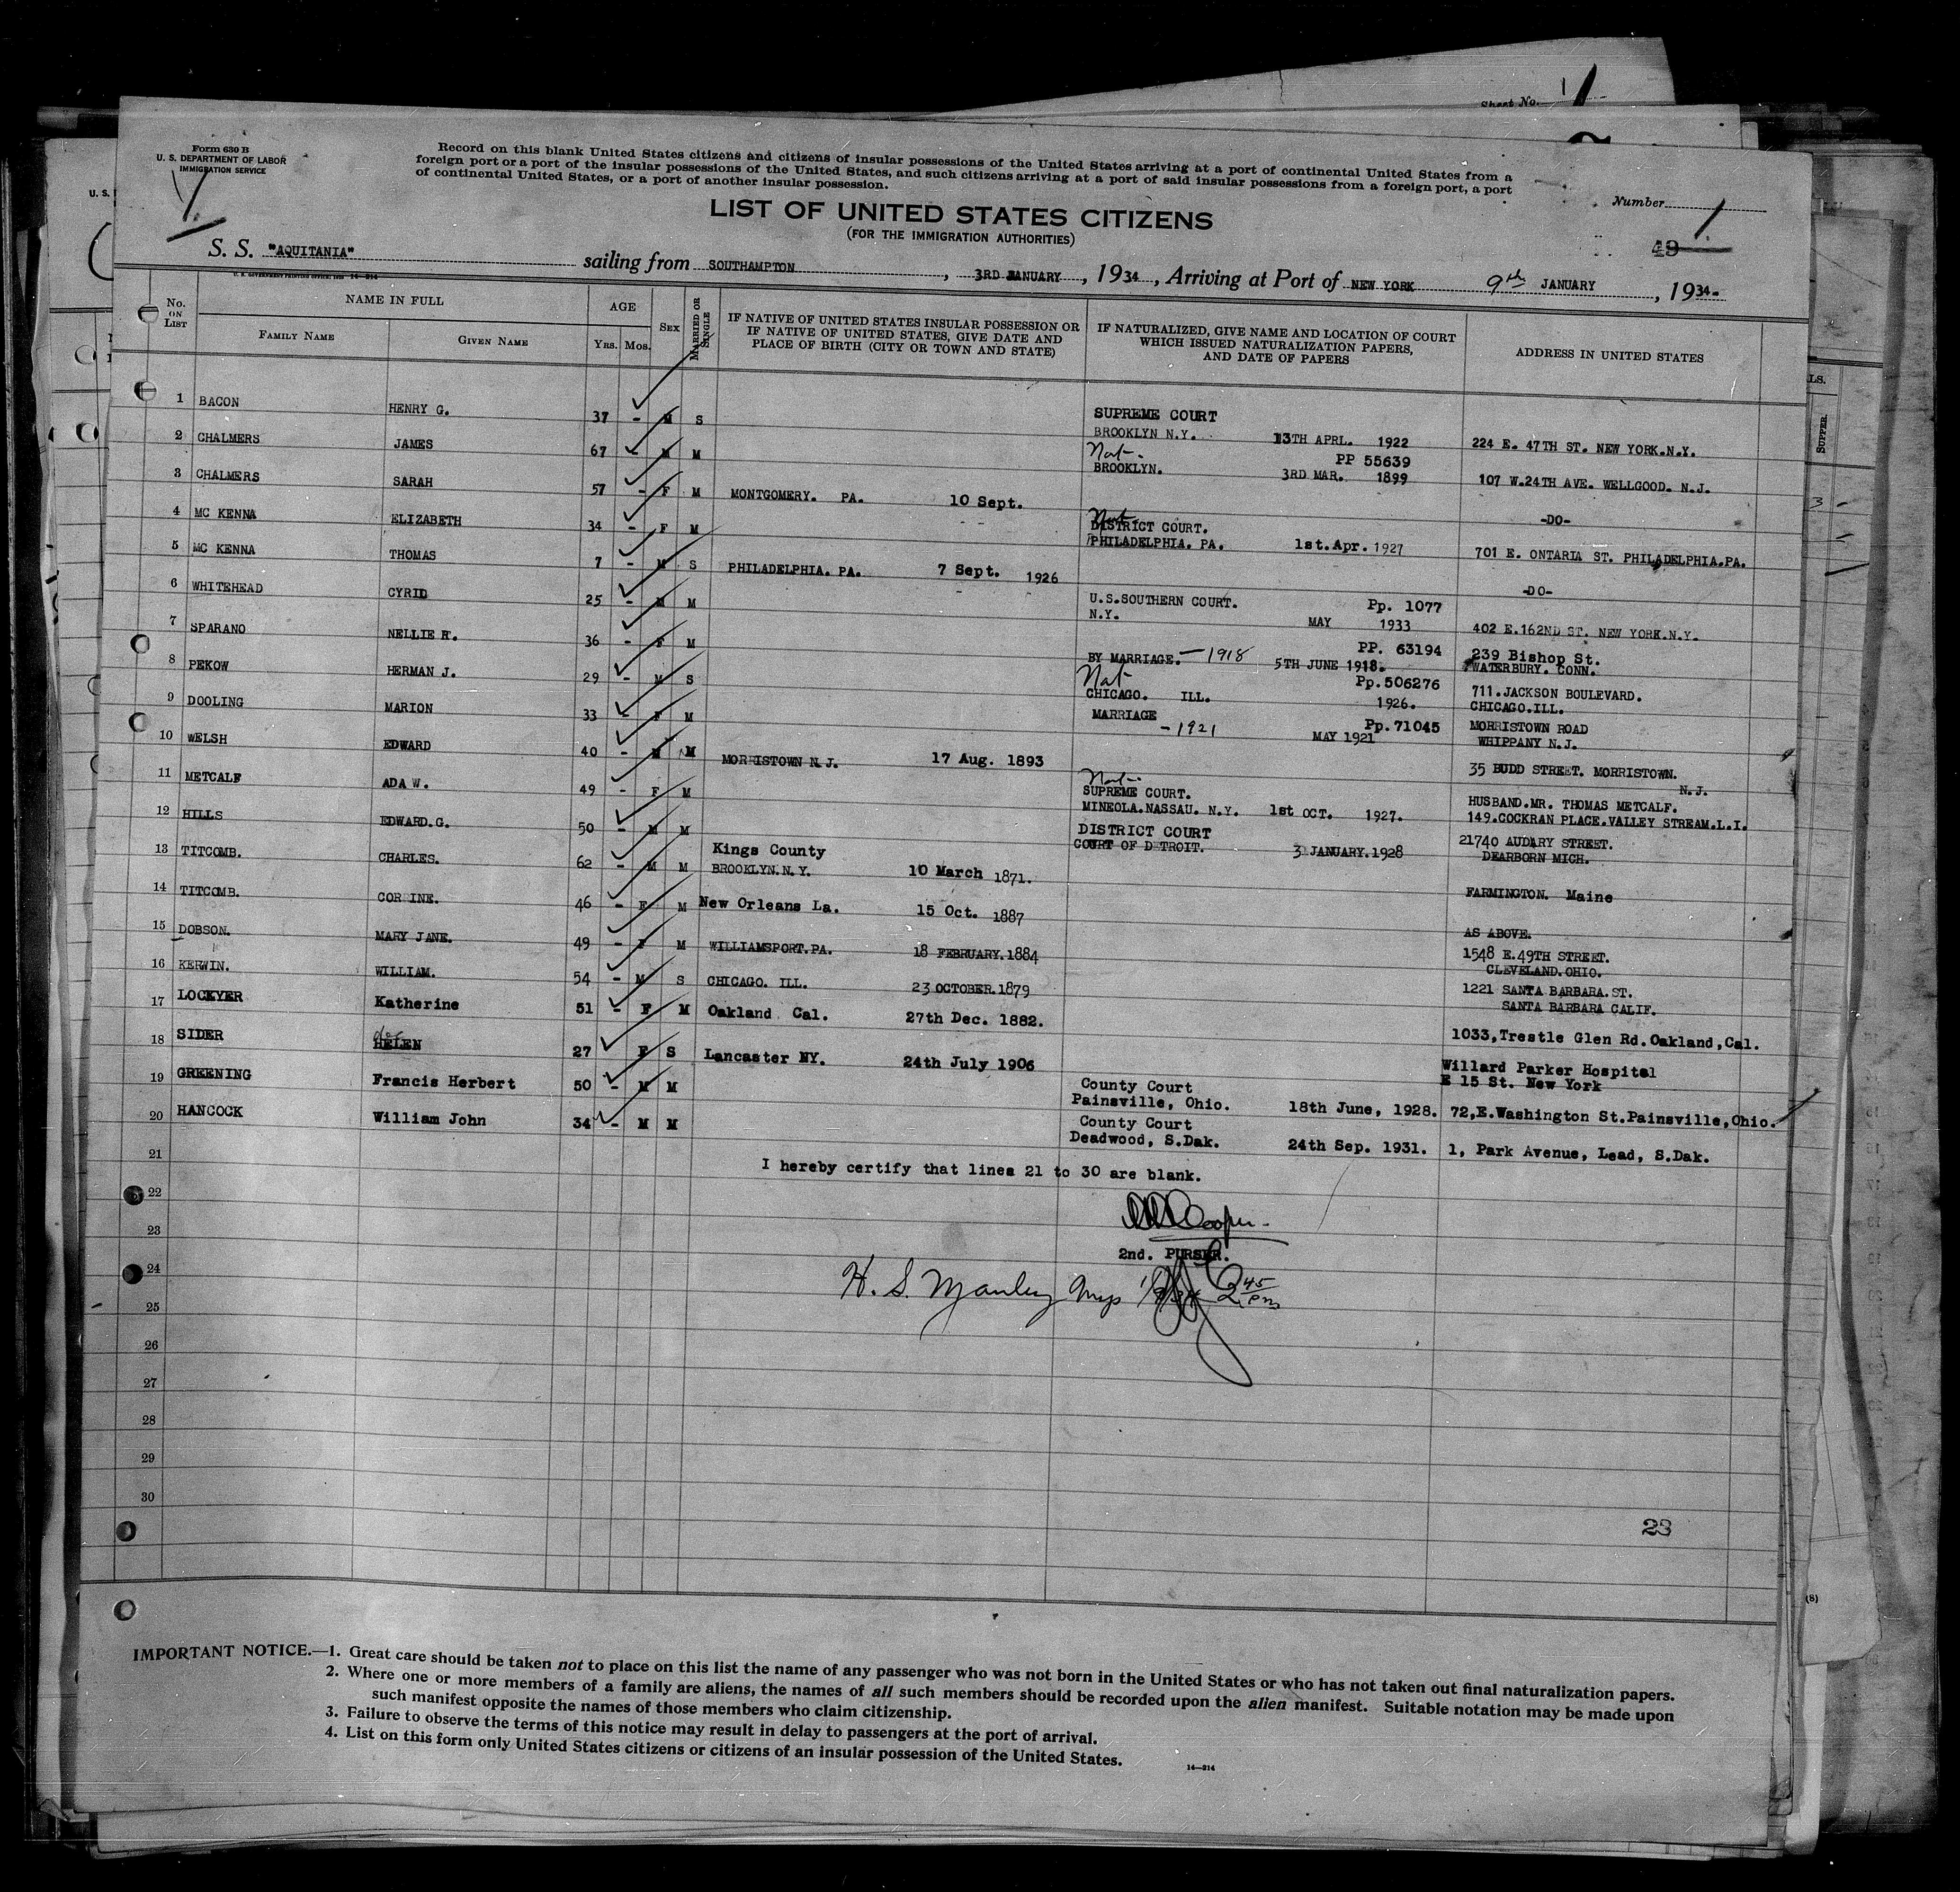 Sheet No. 1
Form 630 B
U. S. DEPARTMENT OF LABOR
IMMIGRATION SERVICE
U. S.
Record on this blank United States citizens and citizens of insular possessions of the United States arriving at a port of continental United States from a
foreign port or a port of the insular possessions of the United States, and such citizens arriving at a port of said insular possessions from a foreign port, a port
of continental United States, or a port of another insular possession.
Number 1
LIST OF UNITED STATES CITIZENS
(FOR THE IMMIGRATION AUTHORITIES)
49
S. S. "AQUITANIA" sailing from SOUTHAMPTON, 3RD JANUARY, 1934, Arriving at Port of NEW YORK 9th JANUARY, 1934-
U. S. GOVERNMENT PRINTING OFFICE: 14—214
No. ON LIST NAME IN FULL FAMILY NAME GIVEN NAME AGE YRS. MOS. SEX MARRIED OR SINGLE IF NATIVE OF UNITED STATES INSULAR POSSESSION OR IF NATIVE OF UNITED STATES, GIVE DATE AND PLACE OF BIRTH (CITY OR TOWN AND STATE) IF NATURALIZED, GIVE NAME AND LOCATION OF COURT WHICH ISSUED NATURALIZATION PAPERS, AND DATE OF PAPERS ADDRESS IN UNITED STATES
1 BACON HENRY G. 37 - M S SUPREME COURT
BROOKLYN N.Y. 13TH APRL. 1922 224 E. 47TH ST. NEW YORK.N.Y.
2 CHALMERS JAMES 67 - M M Nat- PP 55639
BROOKLYN. 3RD MAR. 1899 107 W.24TH AVE. WELLGOOD. N.J.
3 CHALMERS SARAH 57 - F M MONTGOMERY. PA. 10 Sept. -DO-
4 MC KENNA ELIZABETH 34 - F M Nat DISTRICT COURT.
PHILADELPHIA. PA. 1st.Apr. 1927 701 E. ONTARIA ST. PHILADELPHIA.PA.
5 MC KENNA THOMAS 7 - M S PHILADELPHIA. PA. 7 Sept. 1926 -DO-
6 WHITEHEAD CYRID 25 - M M U.S.SOUTHERN COURT. Pp. 1077
N.Y. MAY 1933 402 E.162ND ST. NEW YORK.N.Y.
7 SPARANO NELLIE R. 36 - F M PP. 63194 239 Bishop St.
BY MARRIAGE. - 1918 5TH JUNE 1918. WATERBURY. CONN.
8 PEKOW HERMAN J. 29 - M S Nat Pp.506276 711.JACKSON BOULEVARD.
CHICAGO. ILL. 1926. CHICAGO.ILL.
9 DOOLING MARION 33 - F M MARRIAGE - 1921 Pp.71045 MORRISTOWN ROAD
MAY 1921 WHIPPANY N.J.
10 WELSH EDWARD 40 - M M MORRISTOWN N.J. 17 Aug. 1893 35 BUDD STREET. MORRISTOWN.
N.J.
11 METCALF ADA W. 49 - F M Nat- SUPREME COURT. HUSBAND.MR. THOMAS METCALF.
MINEOLA.NASSAU. N.Y. 1st OCT. 1927. 149.COCKRAN PLACE.VALLEY STREAM.L.I.
12 HILLS EDWARD.G. 50 - M M DISTRICT COURT 21740 AUDARY STREET.
COURT OF DETROIT. 3 JANUARY.1928 DEARBORN MICH.
13 TITCOMB. CHARLES. 62 - M M Kings County
BROOKLYN.N.Y. 10 March 1871. FARMINGTON. Maine
14 TITCOMB. CORRINE. 46 - F M New Orleans La. 15 Oct. 1887 AS ABOVE.
15 DOBSON. MARY JANE. 49 - F M WILLIAMSPORT.PA. 18 FEBRUARY.1884 1548 E.49TH STREET.
CLEVELAND.OHIO.
16 KERWIN. WILLIAM. 54 - M S CHICAGO. ILL. 23 OCTOBER.1879 1221 SANTA BARBARA.ST.
SANTA BARBARA CALIF.
17 LOCKYER Katherine 51 - F M Oakland Cal. 27th Dec. 1882. 1033,Trestle Glen Rd.Oakland,Cal.
18 SIDER HELEN 27 F S Lancaster NY. 24th July 1906 Willard Parker Hospital
E 15 St. New York
19 GREENING Francis Herbert 50 - M M County Court
Painsville, Ohio. 18th June, 1928. 72,E.Washington St.Painsville,Ohio.
20 HANCOCK William John 34 - M M County Court
Deadwood, S.Dak. 24th Sep. 1931. 1, Park Avenue, Lead, S.Dak.
21 I hereby certify that lines 21 to 30 are blank.
22
Cooper.
23
2nd. PURSER.
24
H. S. Manley 2 45 pm
25
26
27
28
29
30
23
IMPORTANT NOTICE.—1. Great care should be taken not to place on this list the name of any passenger who was not born in the United States or who has not taken out final naturalization papers.
2. Where one or more members of a family are aliens, the names of all such members should be recorded upon the alien manifest. Suitable notation may be made upon
such manifest opposite the names of those members who claim citizenship.
3. Failure to observe the terms of this notice may result in delay to passengers at the port of arrival.
4. List on this form only United States citizens or citizens of an insular possession of the United States.
14—214
LS.
SUPPER.
3
(8)